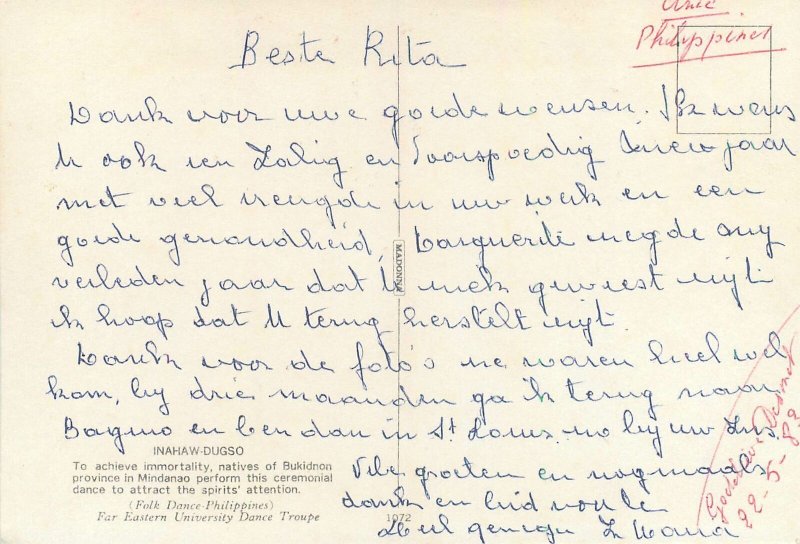 Azië
Philippinen
Beste Rita
Dank voor uwe goede wensen. Ik wens
U ook een Zalig en Voorspoedig Nieuwjaar
met veel vreugde in uw werk en een
goede gezondheid, Marguerite zegde my
verleden jaar dat U ziek geweest zijt
ik hoop dat U terug herstelt zijt.
Dank voor de foto's ze waren heel wel
kom, by drie maanden ga ik terug naar
Baguio en ben dan in St Louis no by uw Zus.
Vele groeten en nogmaals
dank en bid voor U
Heel genegen Z Maria
MADONNA
INAHAW-DUGSO
To achieve immortality, natives of Bukidnon
province in Mindanao perform this ceremonial
dance to attract the spirits' attention.
(Folk Dance-Philippines)
Far Eastern University Dance Troupe
1072
22-5-83